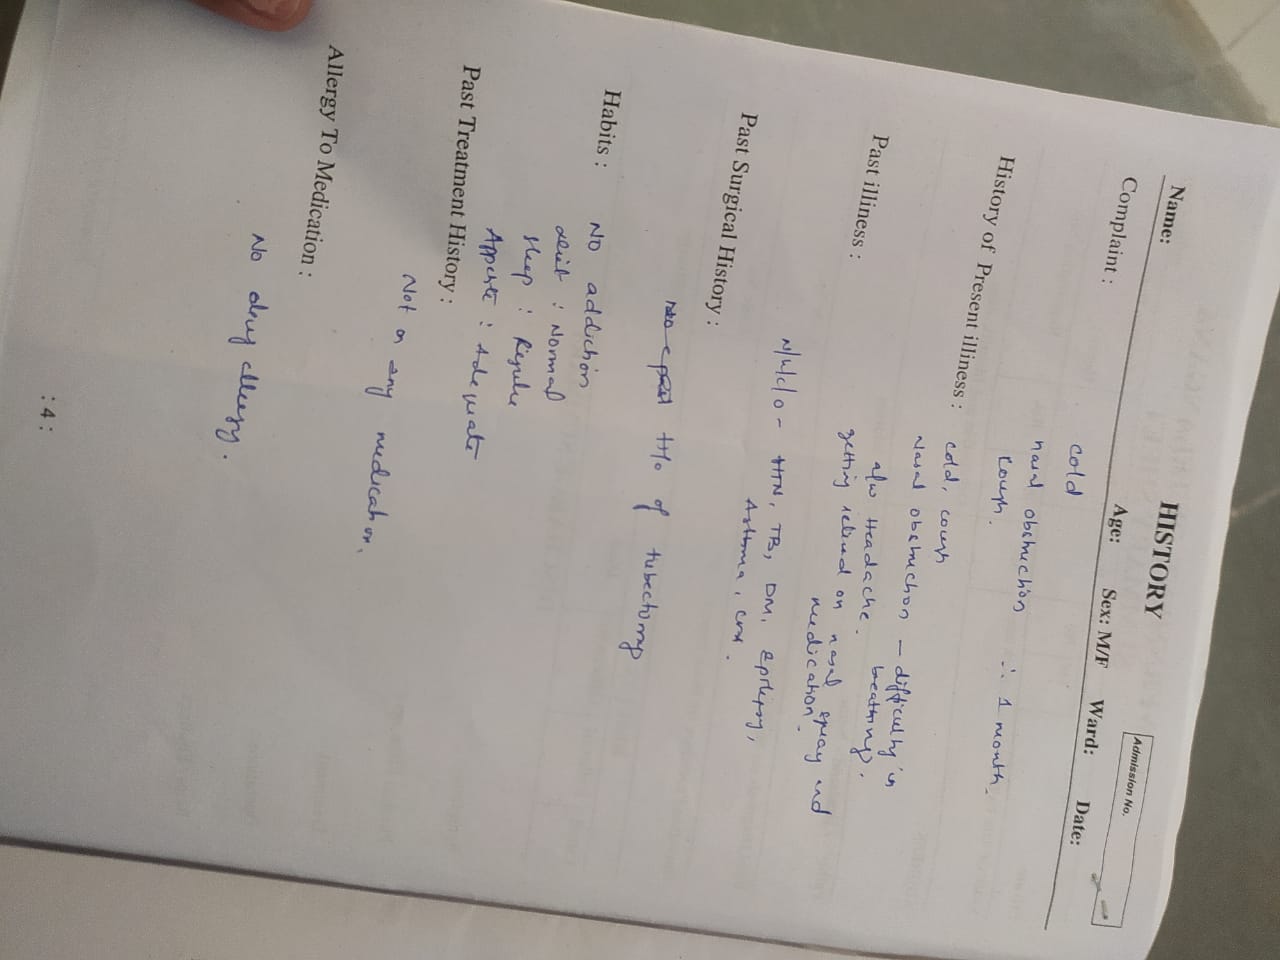 HISTORY
Admission No.
Name: Age: Sex: M/F Ward: Date:
Complaint :
cold
nasal obstruction ∴ 1 month.
cough.
History of Present illness :
cold, cough
Nasal obstruction – difficulty in
breathing.
a/w Headache.
getting relived on nasal spray and
medication.
Past illness :
N/k/c/o – HTN, TB, DM, Epilepsy,
Asthma,
Past Surgical History :
H/o of tubectomy
Habits : No addiction
deit : Normal
sleep : Regular
Appetite : Adequate
Past Treatment History :
Not on any medication.
Allergy To Medication :
No drug allergy.
: 4 :